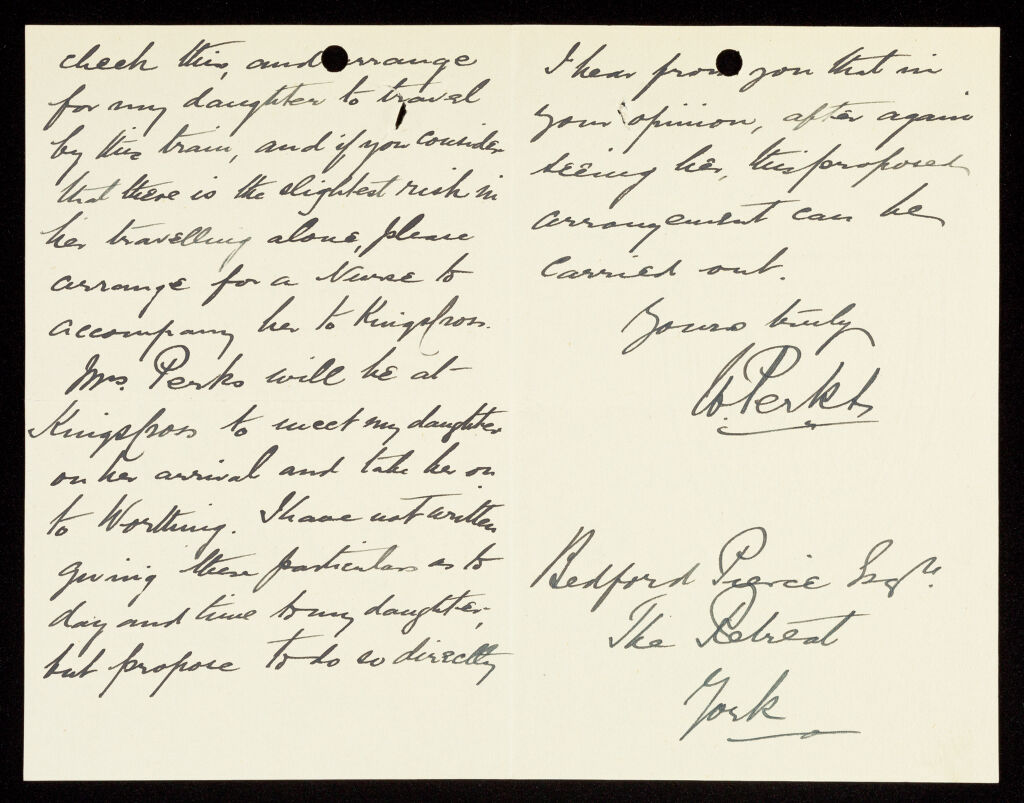 check this, and arrange
for my daughter to travel
by this train, and if you consider
that there is the slightest risk in
her travelling alone, please
arrange for a Nurse to
accompany her to Kings Cross.
Mrs. Perks will be at
Kings Cross to meet my daughter
on her arrival and take her on
to Worthing. I have not written
giving these particulars as to
day and time to my daughter,
but propose to do so directly
I hear from you that in
your opinion, after again
seeing her, this proposed
arrangement can be
carried out.
Yours truly
W. Perks
Bedford Pierce Esqre.
The Retreat
York